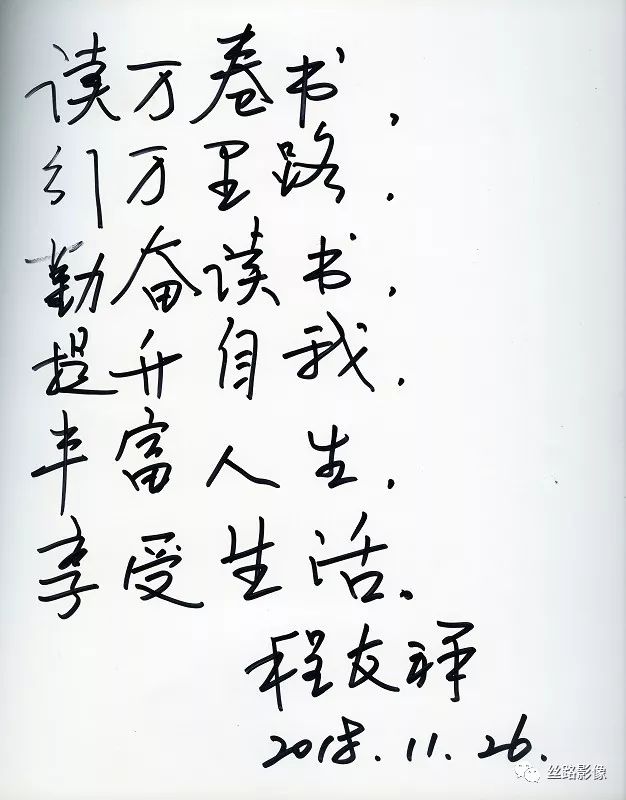 读万卷书，
行万里路．
勤奋读书，
提升自我．
丰富人生，
享受生活。
程友祥
2018.11.26.
丝路影像